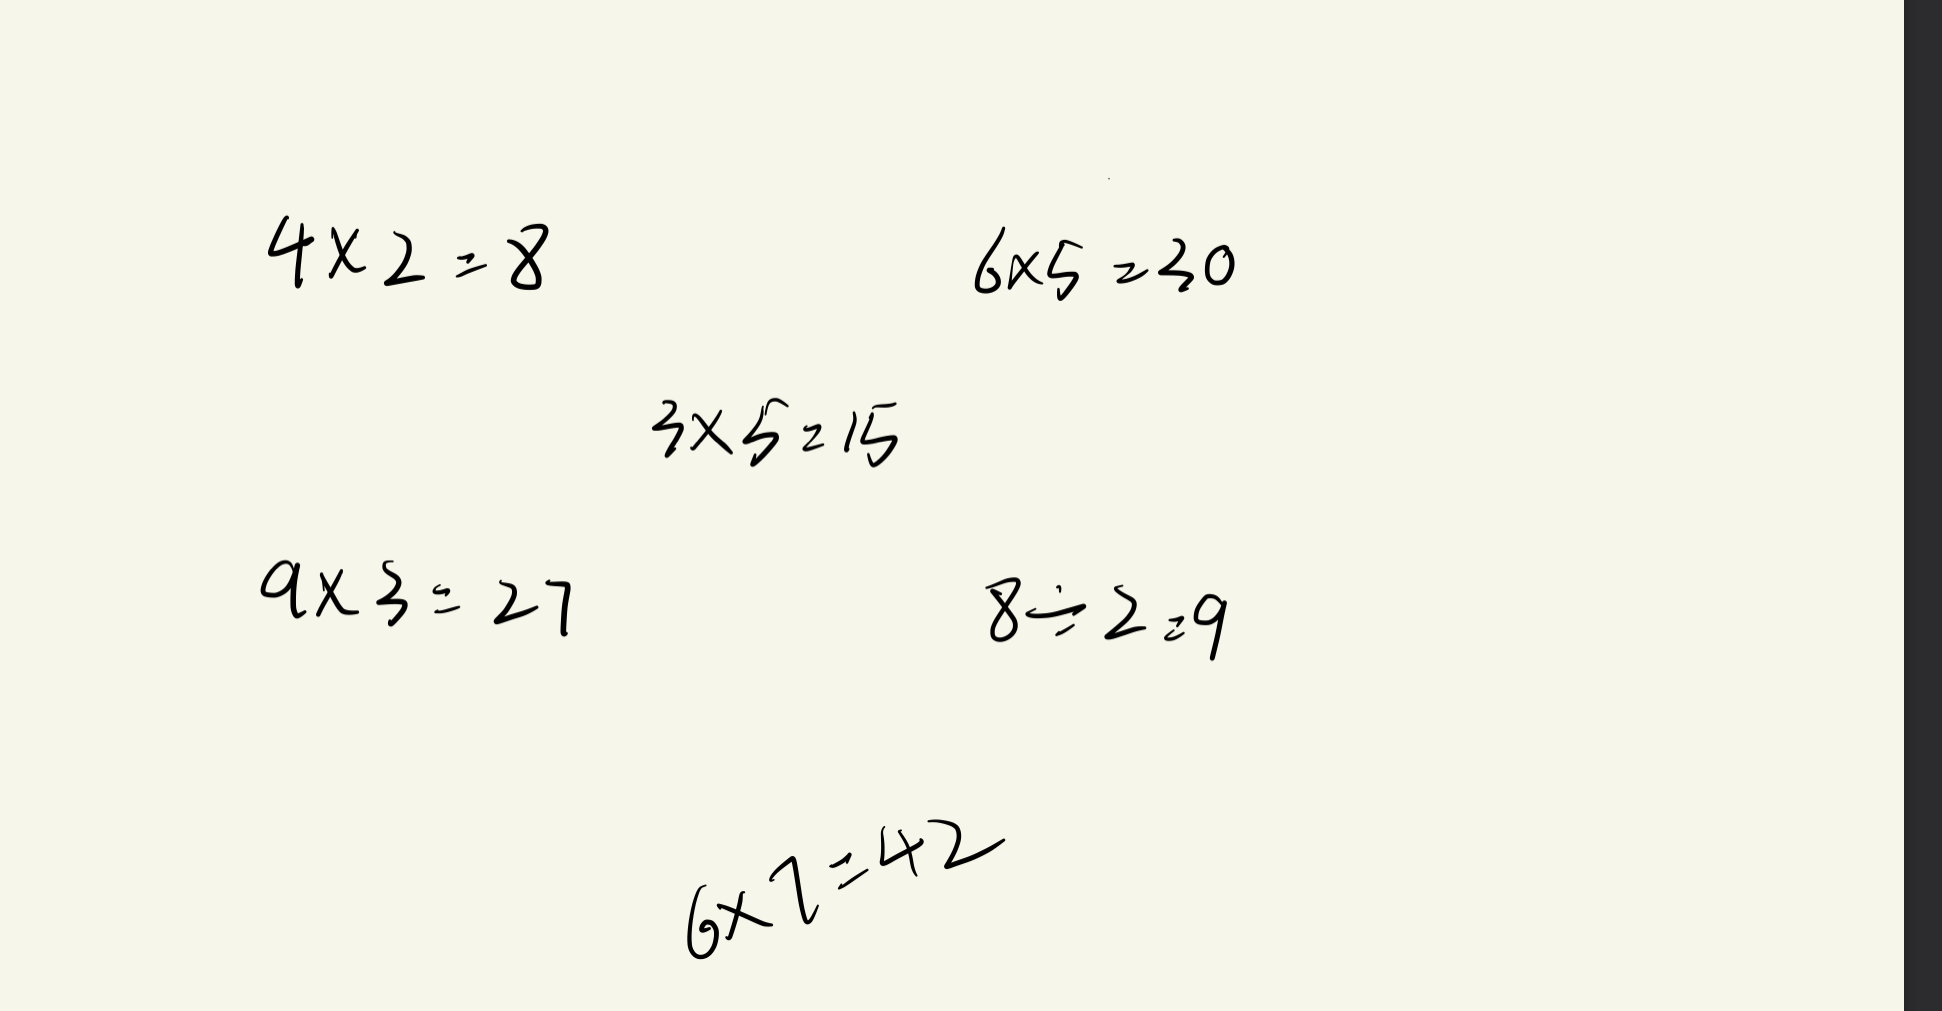 4×2=8
6×5=30
3×5=15
9×3=27
8÷2=9
6×7=42